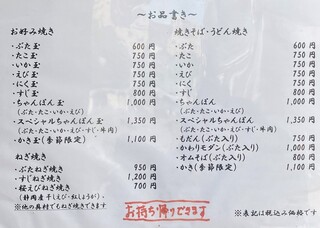 ～お品書き～
お好み焼き
・ぶた玉 600円
・たこ玉 750円
・いか玉 750円
・えび玉 750円
・にく玉 750円
・すじ玉 800円
・ちゃんぽん玉 1,000円
(ぶた・たこ・いか・えび)
・スペシャルちゃんぽん玉 1,350円
(ぶた・たこ・いか・えび・すじ・牛肉)
・かき玉(季節限定) 1,100円
ねぎ焼き
・ぶたねぎ焼き 950円
・すじねぎ焼き 1,200円
・桜えびねぎ焼き 700円
(静岡産干しえび・紅しょうが)
※他の具材でもねぎ焼きできます
焼きそば・うどん焼き
・ぶた 600円
・たこ 750円
・いか 750円
・えび 750円
・にく 750円
・すじ 800円
・ちゃんぽん 1,000円
(ぶた・たこ・いか・えび)
・スペシャルちゃんぽん 1,350円
(ぶた・たこ・いか・えび・すじ・牛肉)
・もだん(ぶた入り) 750円
・かわりモダン(ぶた入り) 1,000円
・オムそば(ぶた入り) 800円
・かき(季節限定) 1,100円
お持ち帰りできます
※表記は税込み価格です